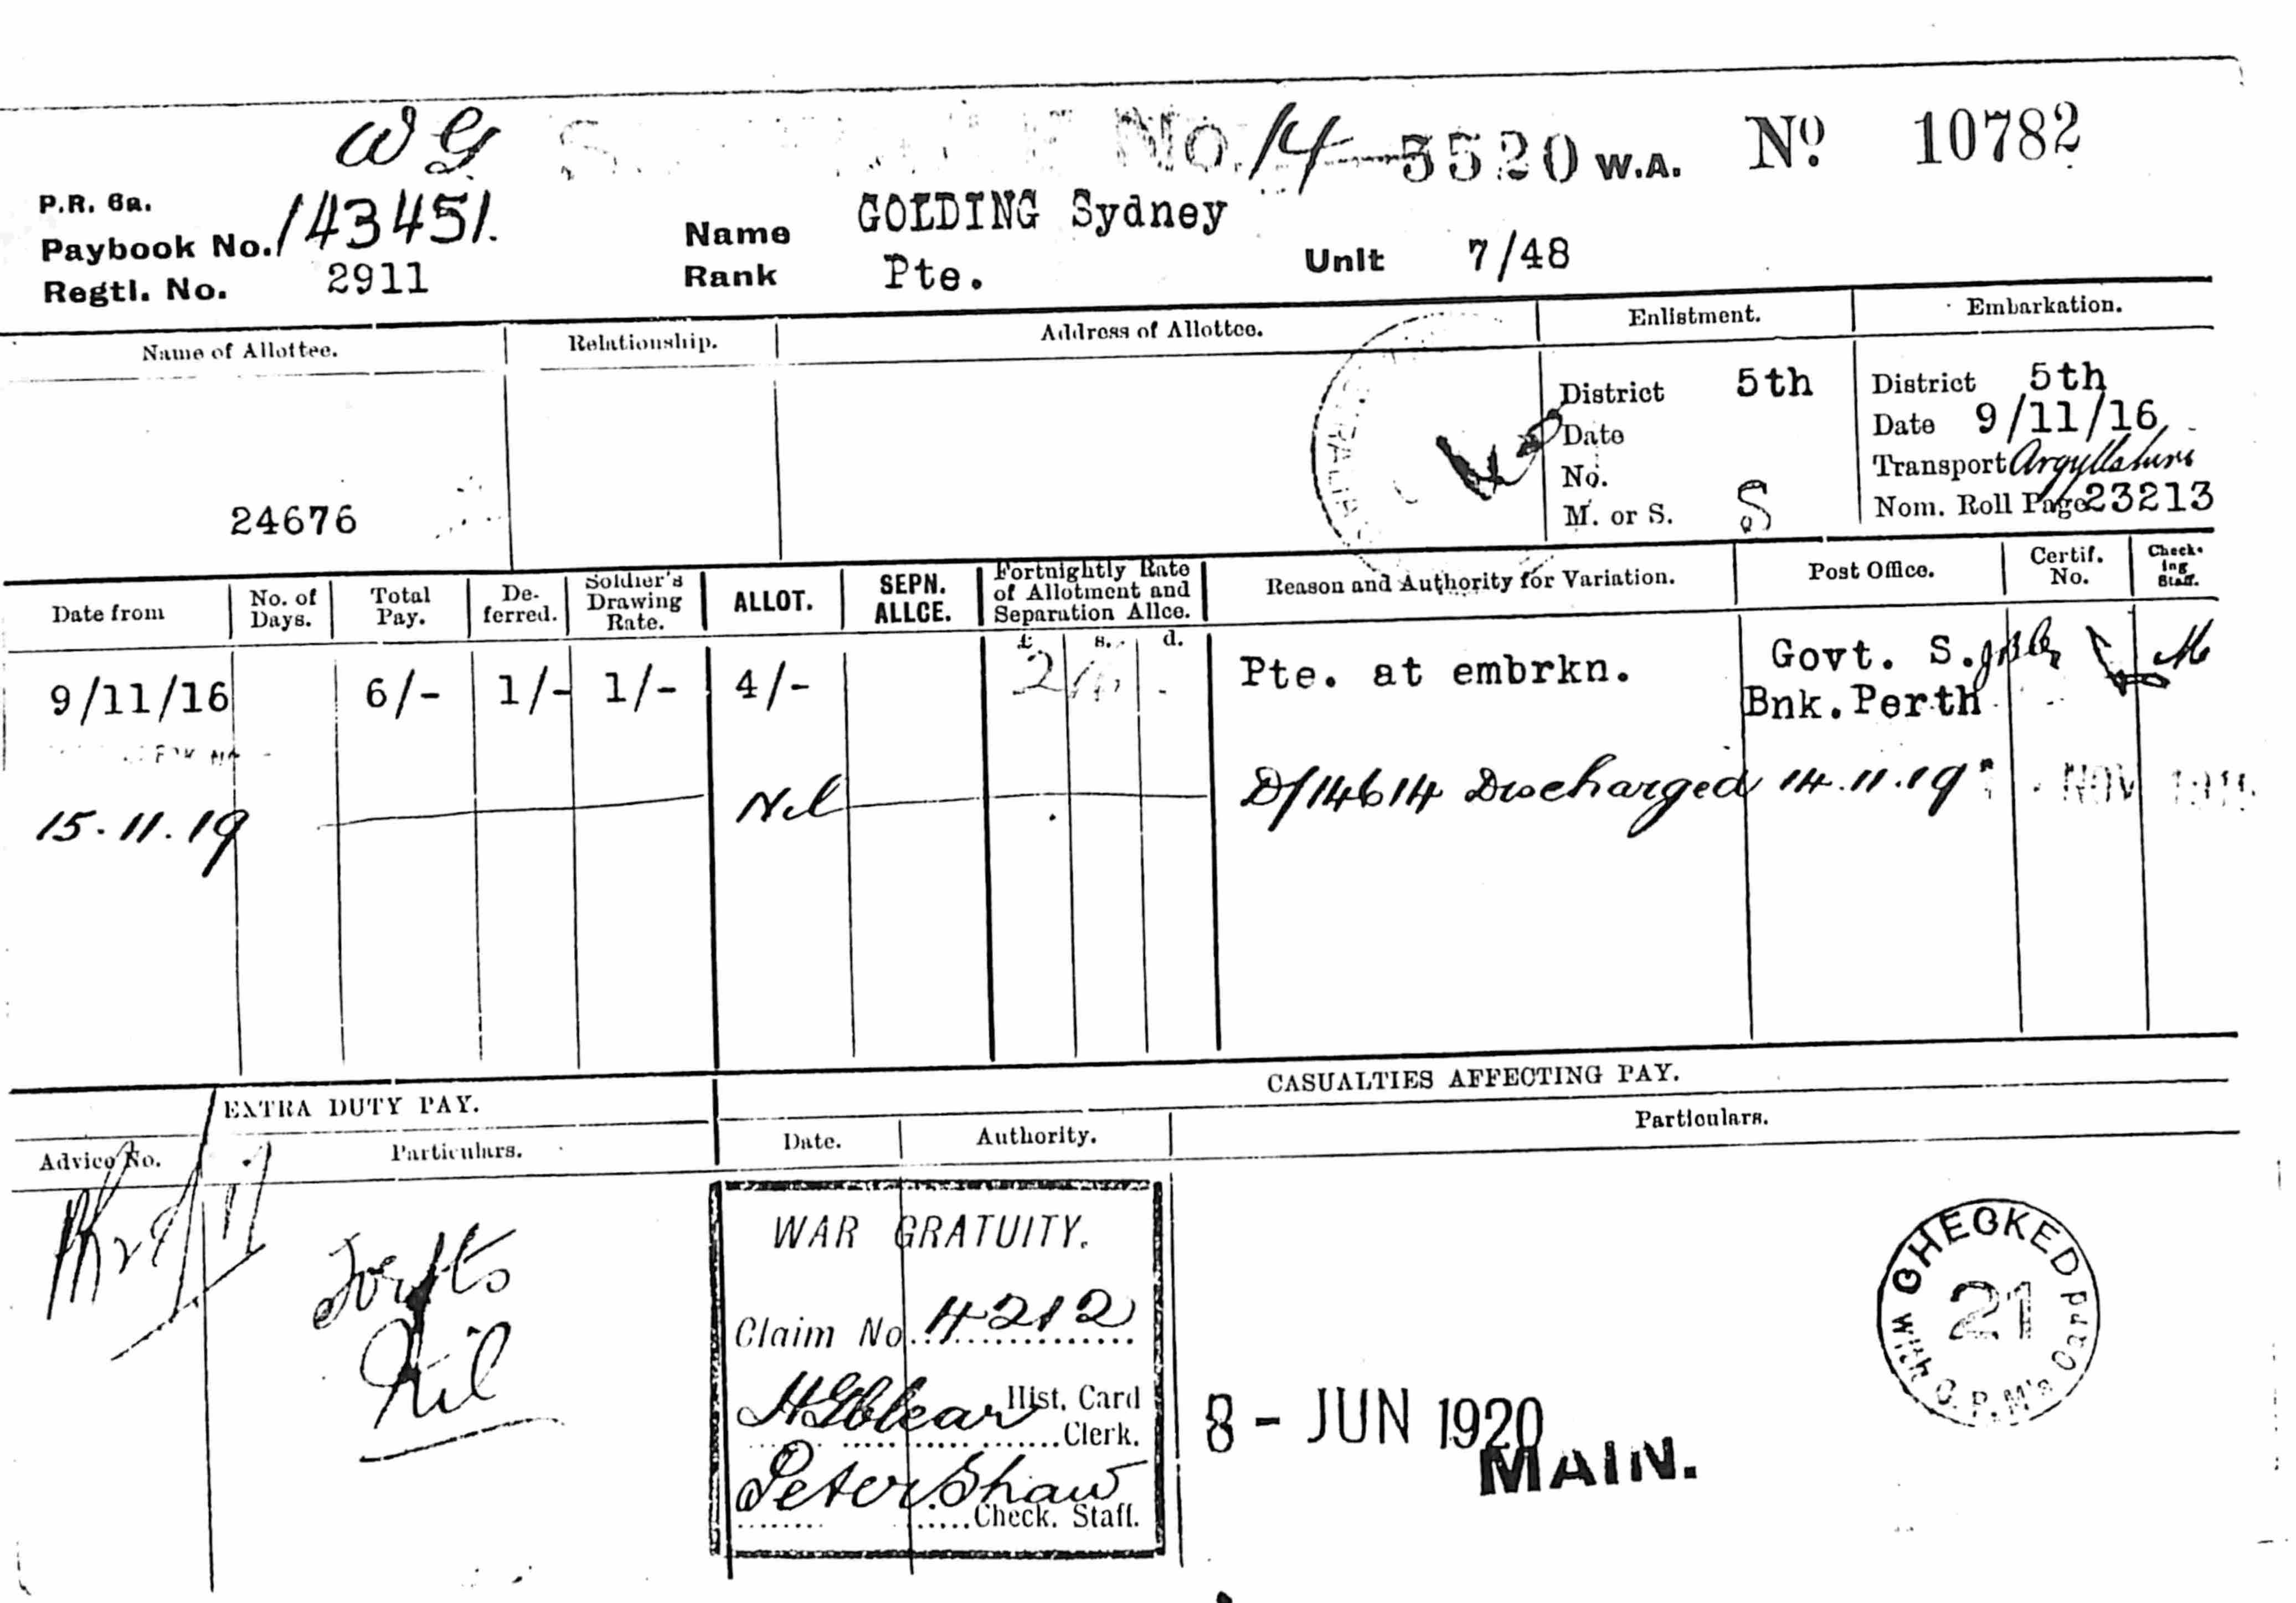 WG
No. 14-5520 W.A. Nº 10782
P.R. 6a.
Paybook No. 143451.
Name GOLDING Sydney
Regtl. No. 2911
Rank Pte.
Unit 7/48
Name of Allottee.
Relationship.
Address of Allottee.
Enlistment.
Embarkation.
24676
District 5th
Date
No.
M. or S. S
District 5th
Date 9/11/16
Transport Argyllshire
Nom. Roll Page 23213
Date from
No. of Days.
Total Pay.
De-ferred.
Soldier's Drawing Rate.
ALLOT.
SEPN. ALLCE.
Fortnightly Rate of Allotment and Separation Allce.
Reason and Authority for Variation.
Post Office.
Certif. No.
Check-ing Staff.
£ s. d.
9/11/16 6/- 1/- 1/- 4/- Pte. at embrkn. Govt. S.
Bnk. Perth
15.11.19 Nil D/14614 Discharged 14.11.19 NOV
EXTRA DUTY PAY.
CASUALTIES AFFECTING PAY.
Advice No.
Particulars.
Date.
Authority.
Particulars.
Nil
WAR GRATUITY.
Claim No. 4212
Hist. Card
Clerk.
Peter Shaw
Check. Staff.
8 - JUN 1920
MAIN.
CHECKED
21
with C.P.M's Card